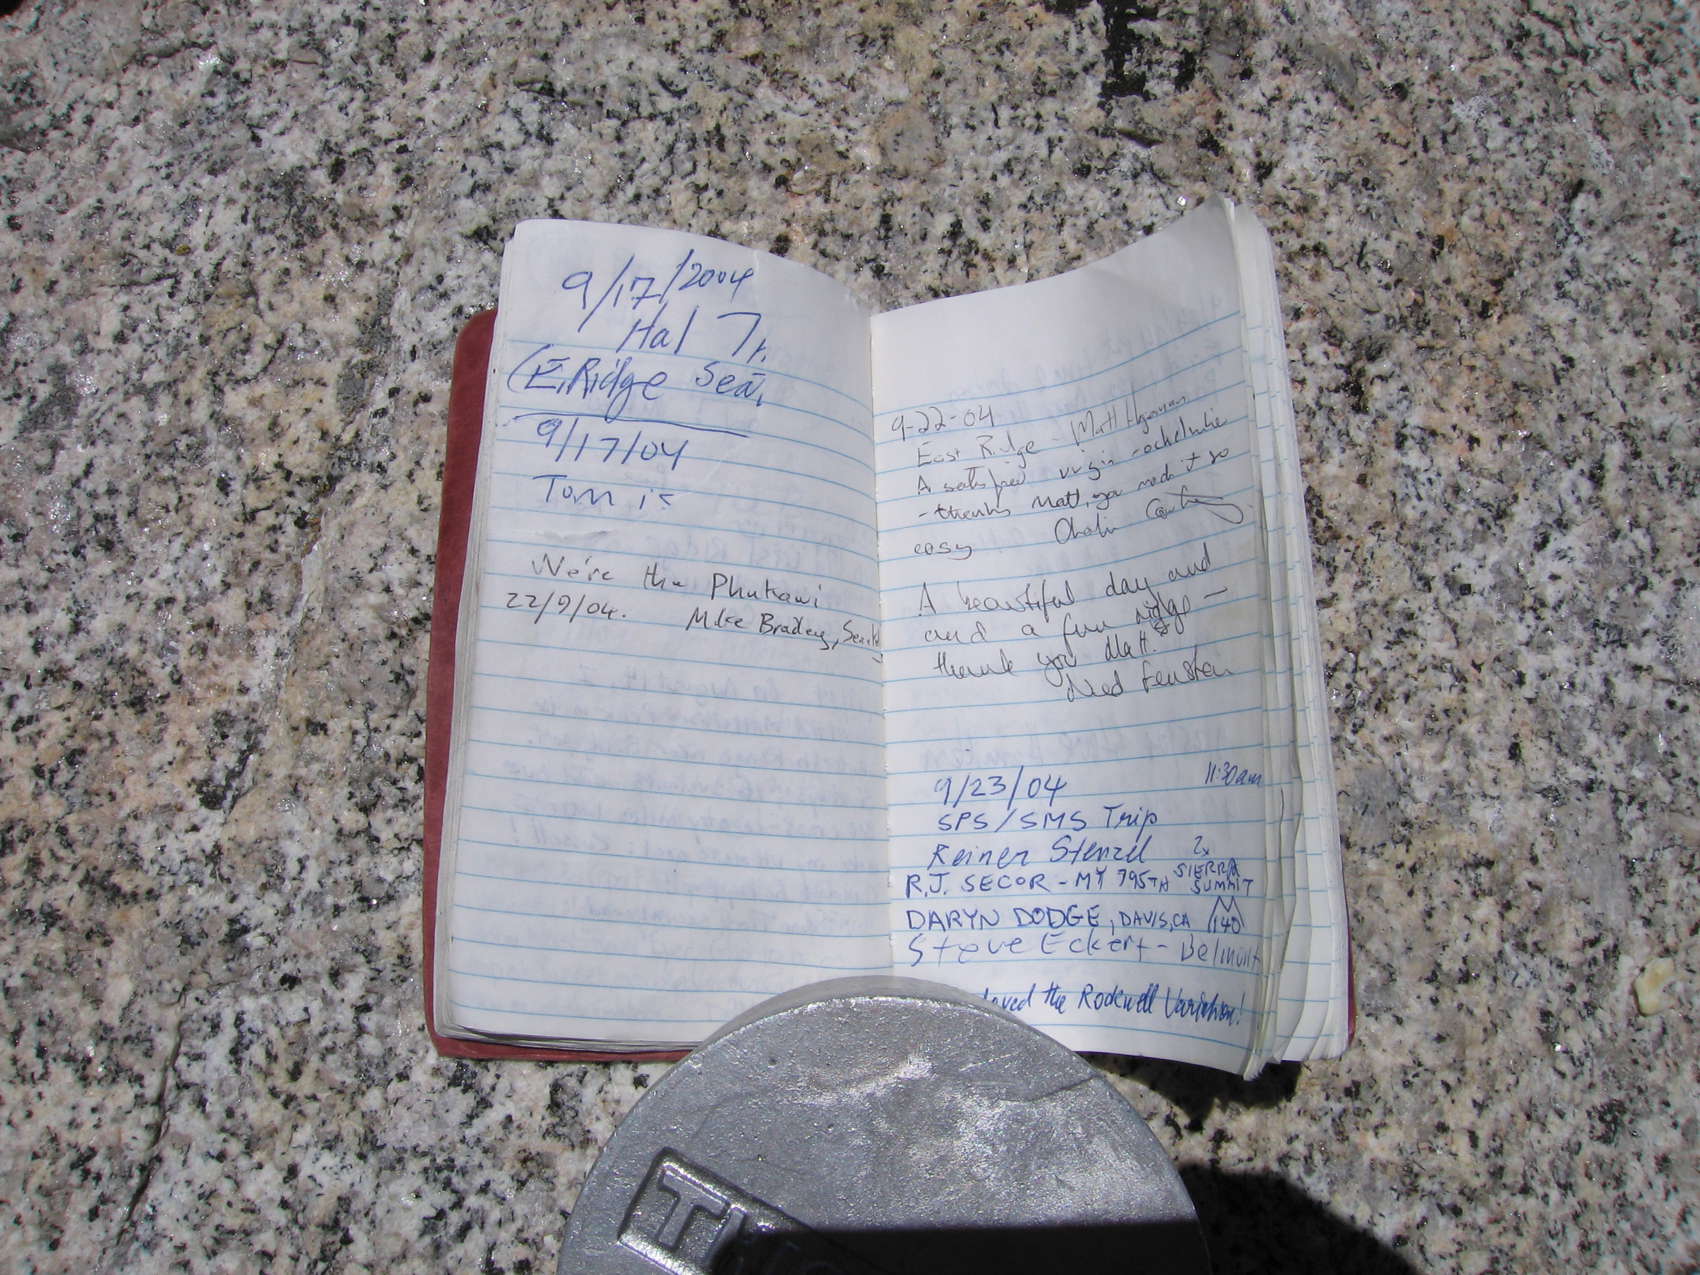 9/17/2004
Hal
(E. Ridge
9/17/04
Tom
We're the Phukawi
22/9/04. Mike Bradley,
9-22-04
East Ridge - Matt
A satisfied virgin
- thanks Matt, you made it so
easy
A beautiful day and
and a fun ridge -
thank you Matt.
Ned
9/23/04 11:30am
SPS/SMS Trip
Reiner Stenzel 2x
R.J. SECOR - MY 795TH SIERRA
SUMMIT
DARYN DODGE, DAVIS, CA 140
Steve Eckert - Belmont
loved the Rockwell Variation!